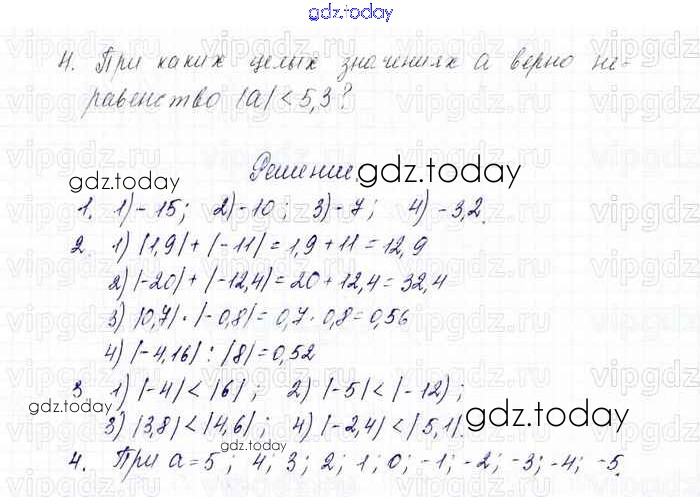 gdz.today
4. При каких целых значениях a верно не-
равенство |a| < 5,3?
Решение.
gdz.today
gdz.today
1. 1) -15; 2) -10; 3) -7; 4) -3,2.
2. 1) |1,9| + |-11| = 1,9 + 11 = 12,9
2) |-20| + |-12,4| = 20 + 12,4 = 32,4
3) |0,7| · |-0,8| = 0,7 · 0,8 = 0,56
4) |-4,16| : |8| = 0,52
3. 1) |-4| < |6|; 2) |-5| < |-12|;
gdz.today
3) |3,8| < |4,6|; 4) |-2,4| < |5,1|.
gdz.today
gdz.today
4. При a = 5; 4; 3; 2; 1; 0; -1; -2; -3; -4; -5.